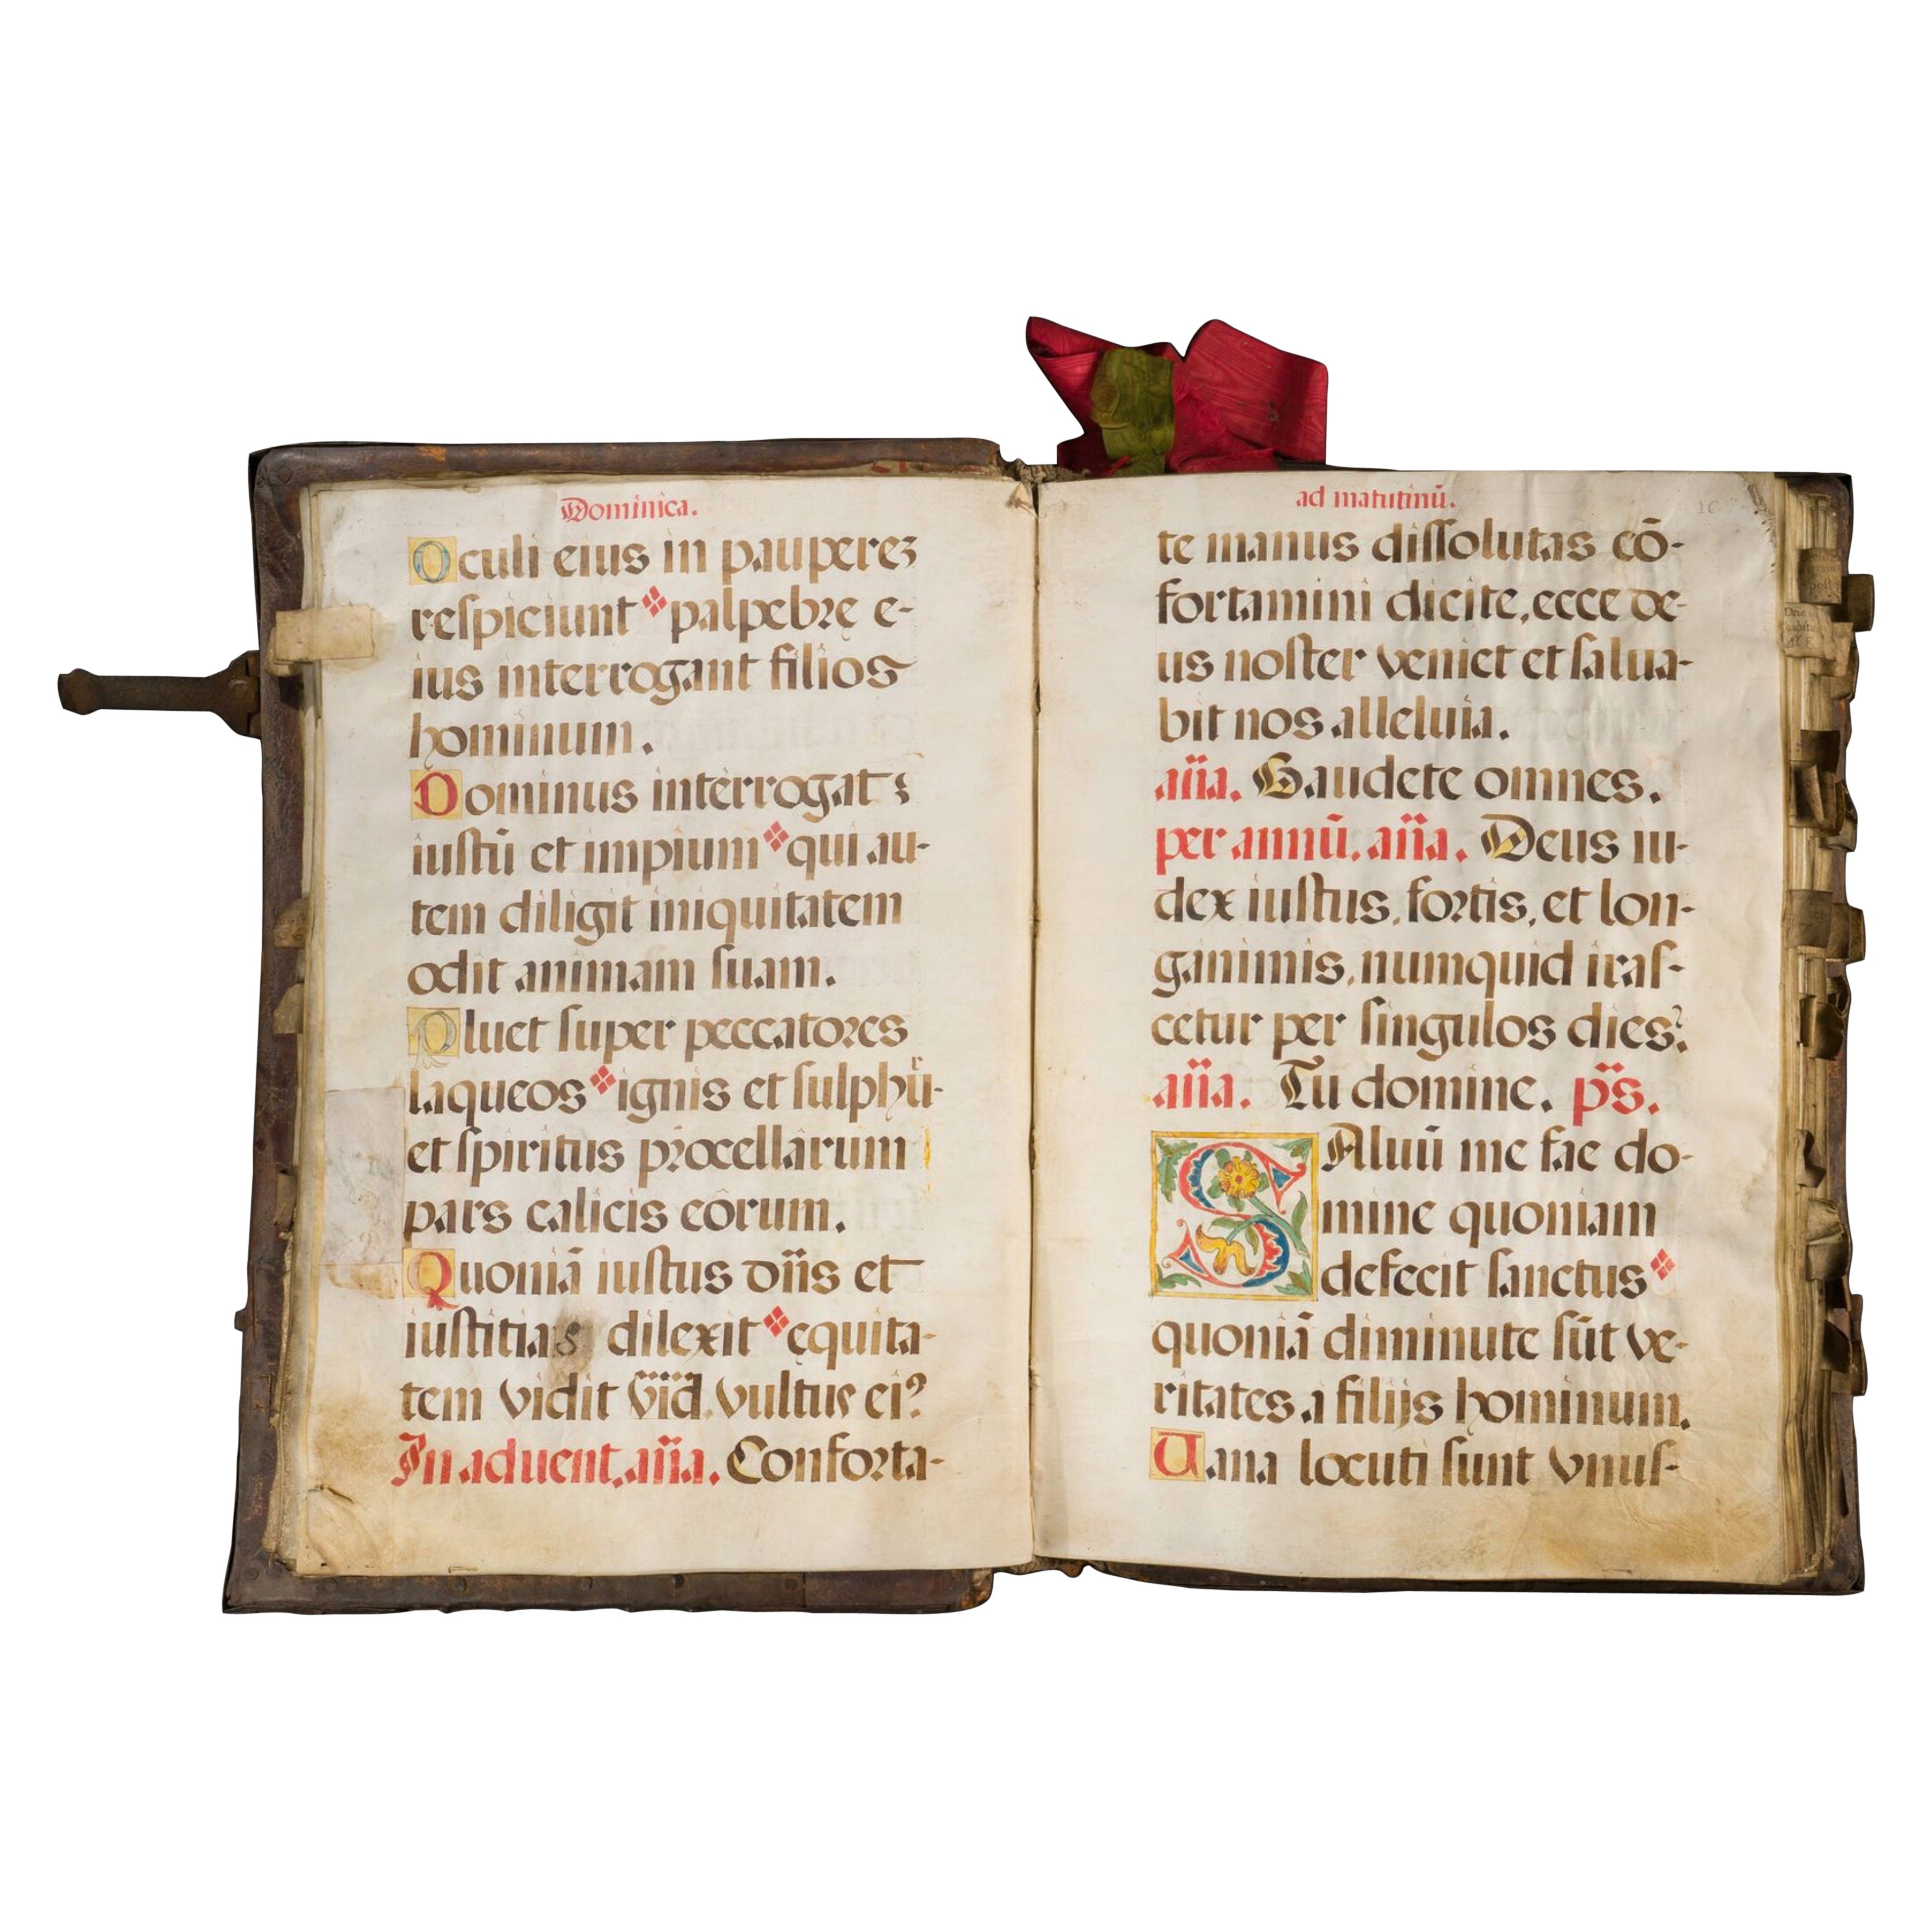 Dominica.
Oculi eius in pauperez
respiciunt palpebre e-
ius interrogant filios
hominum.
Dominus interrogat
iustū et impium qui au-
tem diligit iniquitatem
odit animam suam.
Pluet super peccatores
laqueos ignis et sulphū-
et spiritus procellarum
pars calicis eorum.
Quoniā iustus dn̄s et
iustitias dilexit equita-
tem vidit vultus ei?
In aduent. an̄a. Conforta-
ad matutinū.
te manus dissolutas cō-
fortamini dicite, ecce de-
us noster veniet et salua-
bit nos alleluia.
an̄a. Gaudete omnes.
per annū. an̄a. Deus iu-
dex iustus, fortis, et lon-
ganimis, numquid iras-
cetur per singulos dies?
an̄a. Tu domine. ps̄.
SAluū me fac do-
mine quoniam
defecit sanctus
quoniā diminute sūt ve-
ritates a filijs hominum.
Uana locuti sunt vnus-